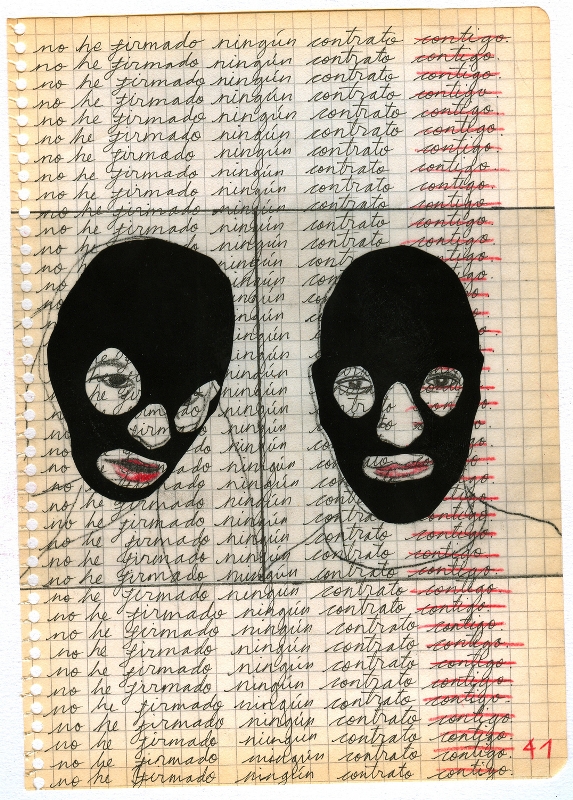 no he firmado ningún contrato contigo.
no he firmado ningún contrato contigo.
no he firmado ningún contrato contigo.
no he firmado ningún contrato contigo.
no he firmado ningún contrato contigo.
no he firmado ningún contrato contigo.
no he firmado ningún contrato contigo.
no he firmado ningún contrato contigo.
no he firmado ningún contrato contigo.
no he firmado ningún contrato contigo.
no he firmado ningún contrato contigo.
no he ningún contrato contigo.
no ningún con
no ningún con
no ningún
no ningún
no ningún
no ningún
no ningún
no ningún
no ningún
no ningún
no ningún
no ningún
no ningún
no he ningún
no he firmado ningún contigo.
no he firmado ningún contrato contigo.
no he firmado ningún contrato contigo.
no he firmado ningún contrato contigo.
no he firmado ningún contrato contigo.
no he firmado ningún contrato contigo.
no he firmado ningún contrato contigo.
no he firmado ningún contrato contigo.
no he firmado ningún contrato contigo.
no he firmado ningún contrato contigo.
no he firmado ningún contrato contigo.
no he firmado ningún contrato contigo.
no he firmado ningún contrato contigo. 41
no he firmado ningún contrato contigo.
no he firmado ningún contrato contigo.